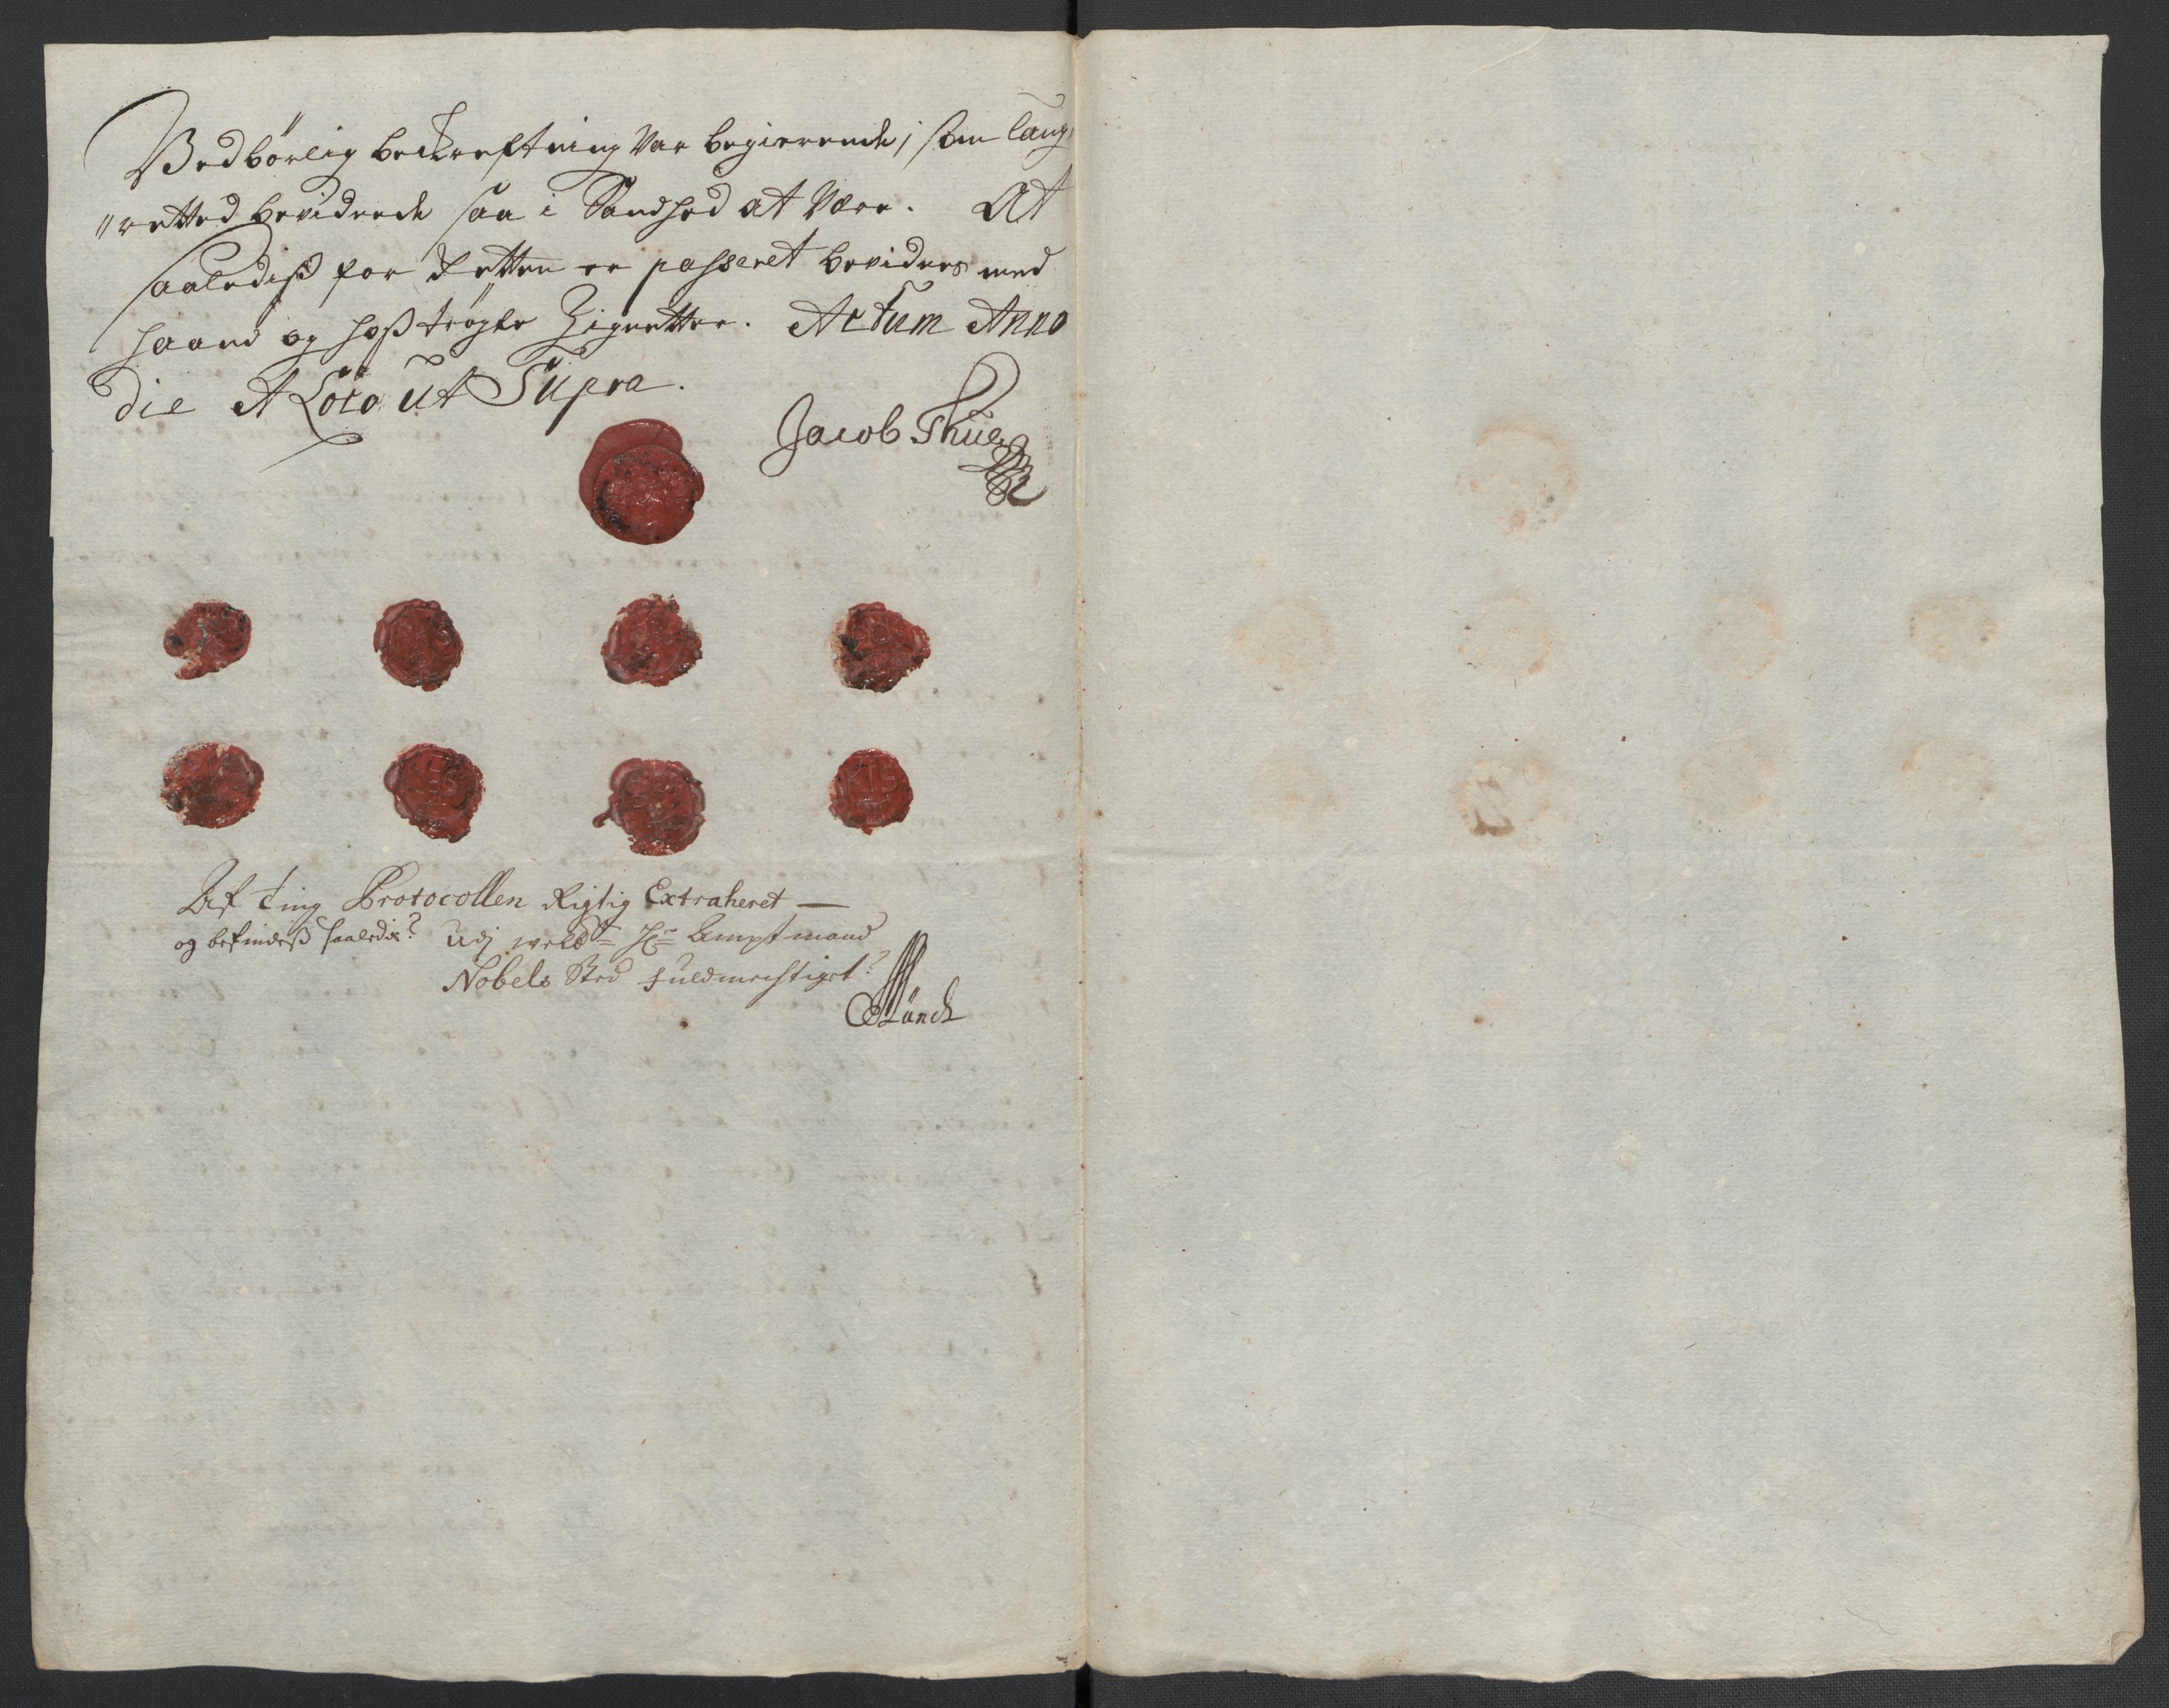 Vedbörlig bekreftning Var begierende, som laug,
"retted bevidnede saa i Sandhed at Være. At
saaledisß for Retten er passeret bevidnes med
haand og hosß trögte Zignetter. Actum Anno
die & Loco ut Supra.
Jacob Thue
ES
KIS
Af Ting Protocollen Rigtig Extraheret —
og befindesß saaledis? Udj welb: Hr: Amptmand
Nobels Sted fuldmechtiget?
Münch